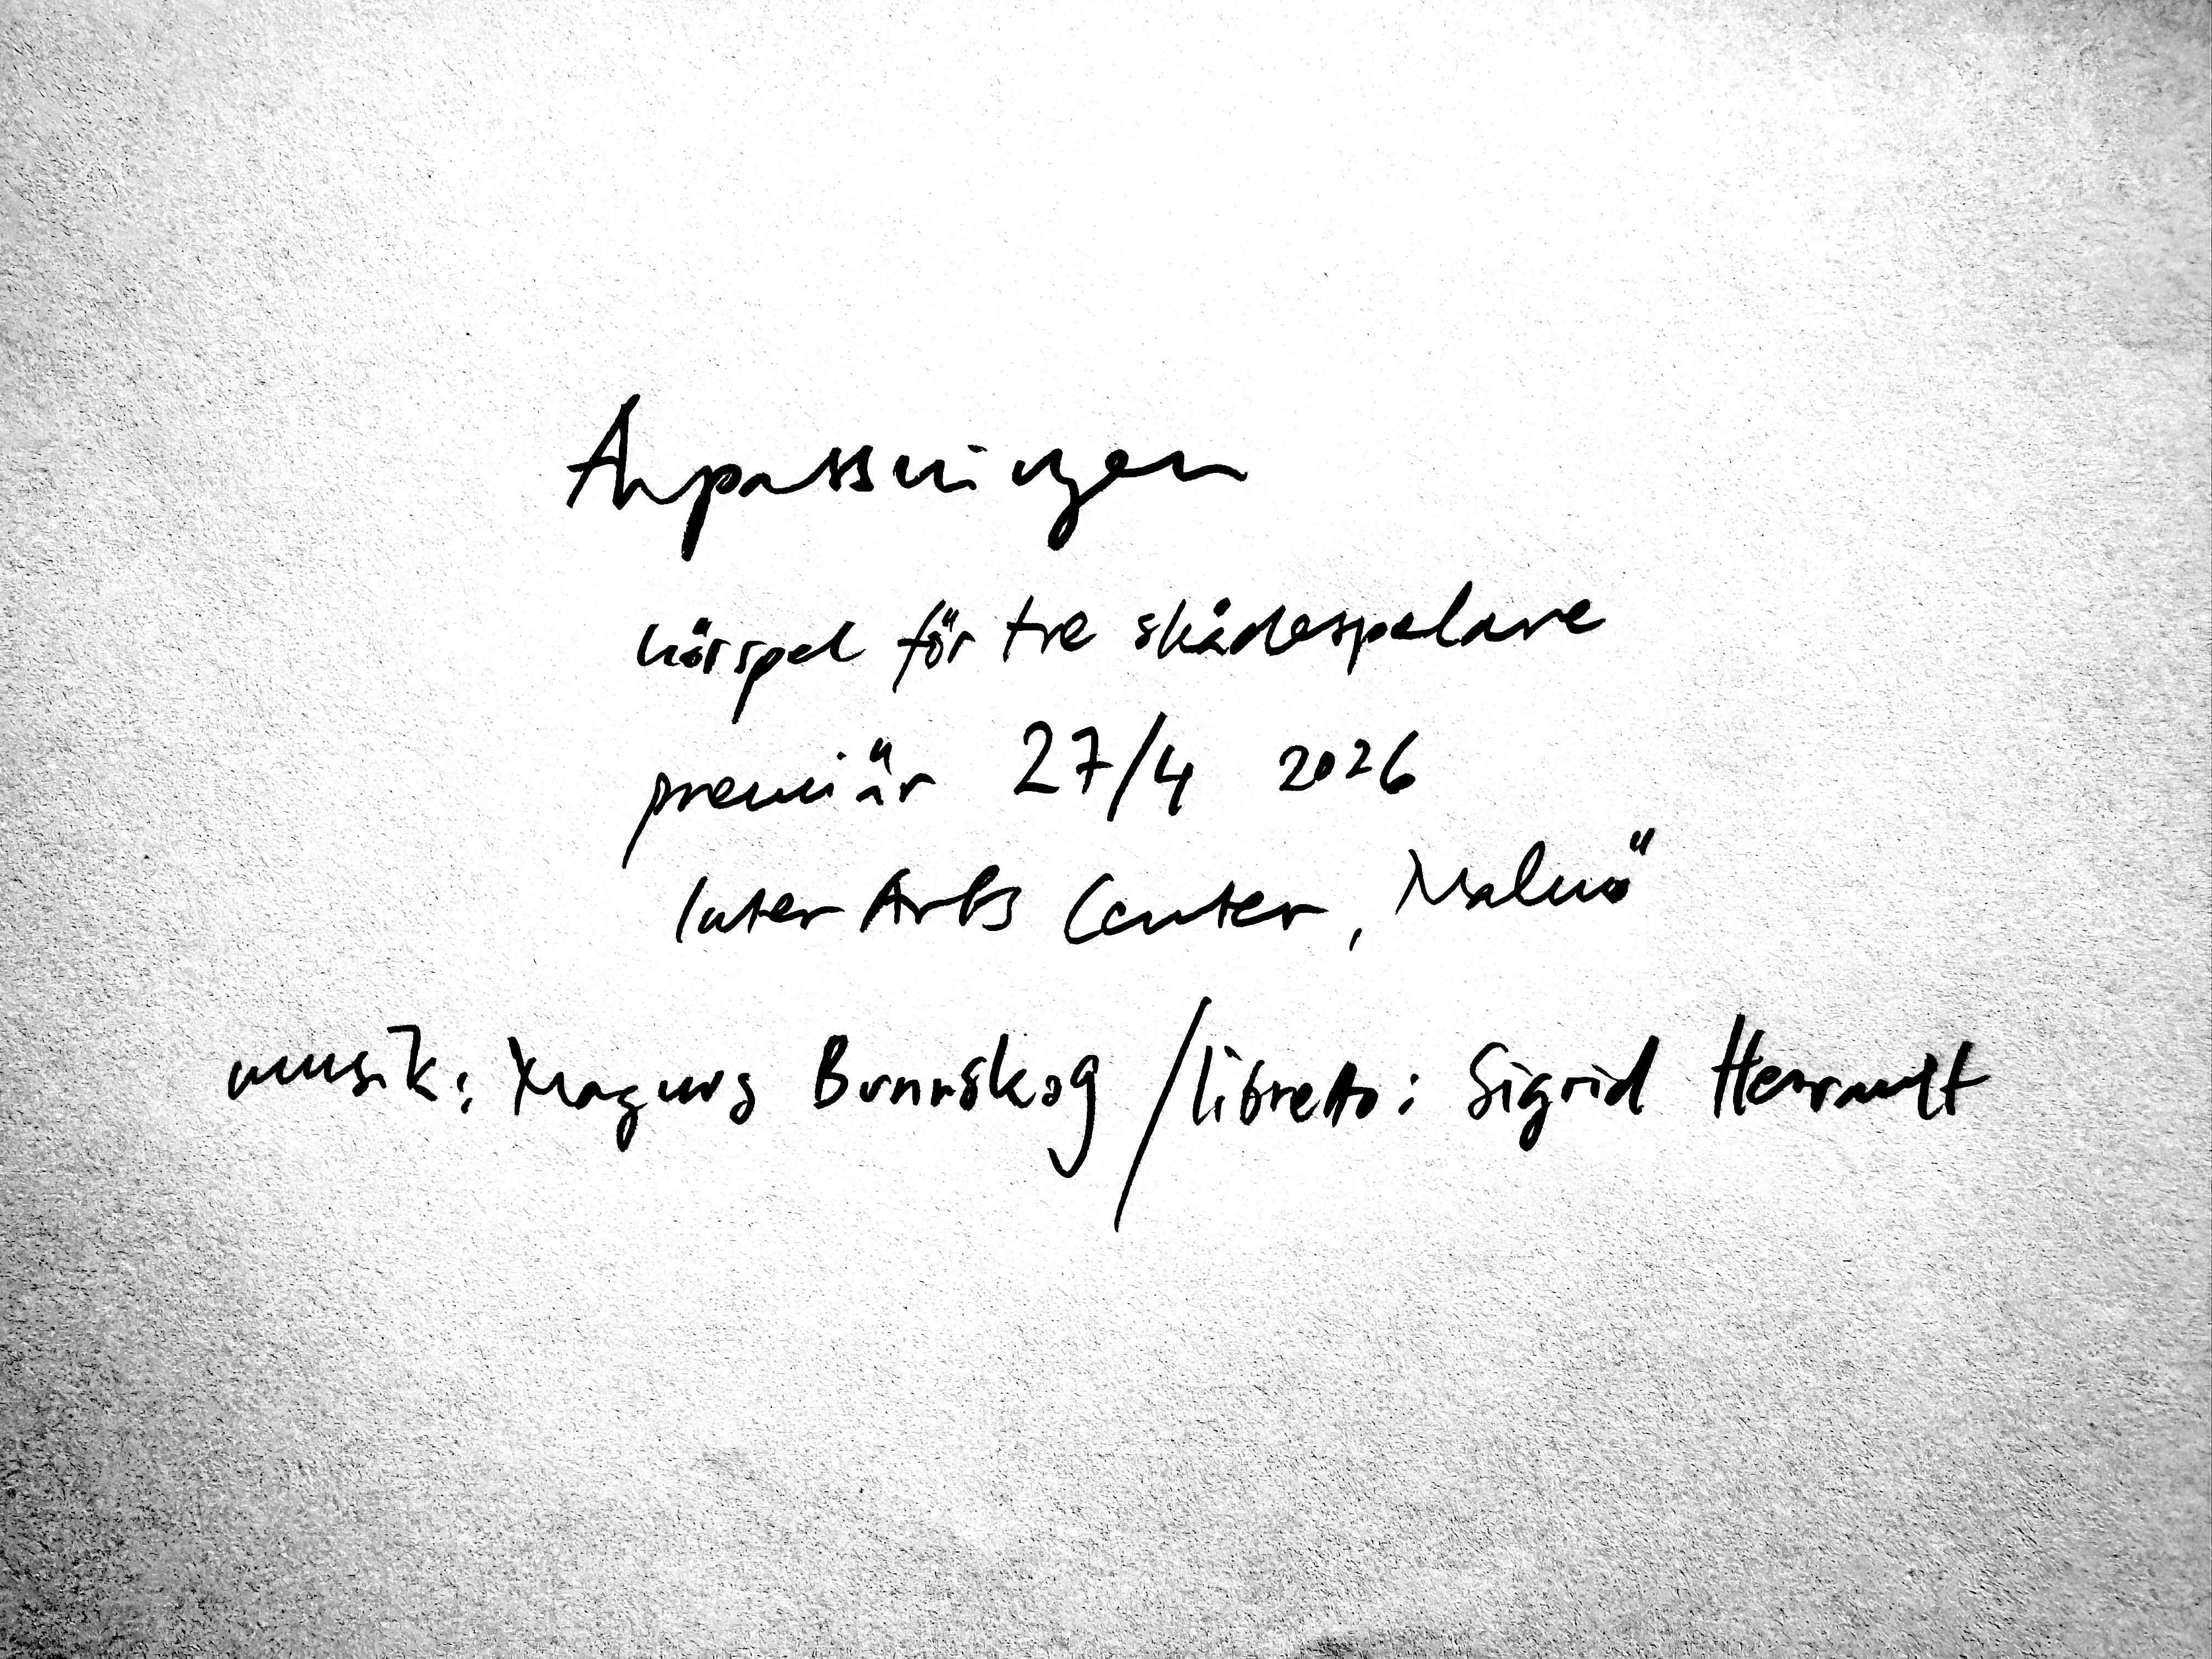 Anpassningen
hörspel för tre skådespelare
premiär 27/4 2026
Inter Arts Center, Malmö
musik: Magnus Bunnskog / libretto: Sigrid Herrault